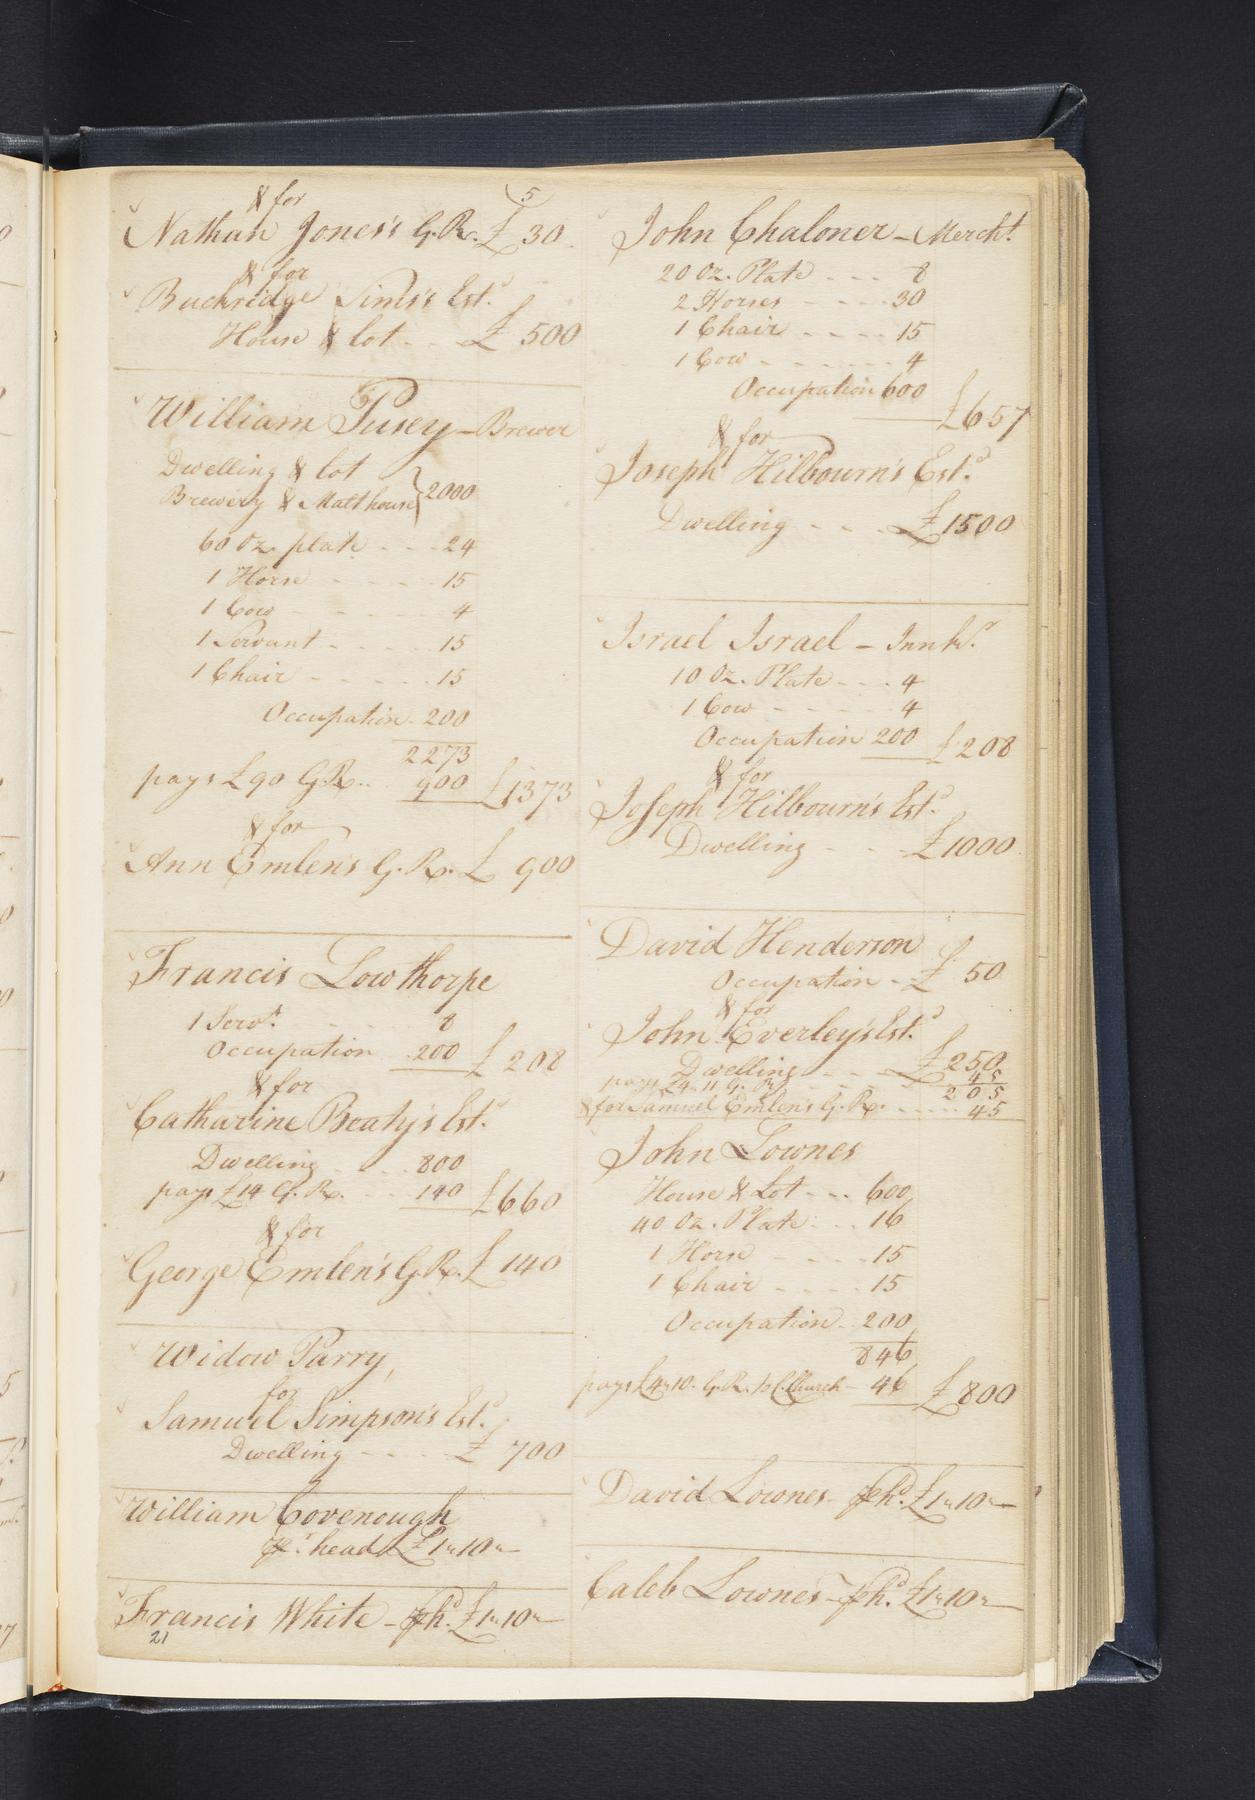 5
& for
Nathan Jones's G.R. £ 30
& for
Buckridge Sims's Estd
House & lot - - £ 500
William Pusey - Brewer
Dwelling & lot
Brewery & Malthouse } 2000
60 Oz. plate - - - 24
1 Horse - - - - 15
1 Cow - - - - - 4
1 Servant - - - - 15
1 Chair - - - - - 15
Occupation - 200
2273
pays £90 G.R. - 900 £1373
& for
Ann Emlen's G.R. £ 900
Francis Lowthorpe
1 Servt. - - - 8
Occupation 200 £ 208
& for
Catharine Beaty's Estd
Dwelling - - - 800
pays £14 G.R. - - 140 £660
& for
George Emlen's G.R. £ 140
Widow Parry,
for
Samuel Simpson's Estd
Dwelling - - - - £ 700
William Covenough
pr. head £1"10"-
Francis White - phd. £1"10"-
21
John Chaloner - Mercht.
20 Oz. Plate - - - 8
2 Horses - - - - 30
1 Chair - - - - 15
1 Cow - - - - - 4
Occupation 600
£657
& for
Joseph Hilbourn's Estd
Dwelling - - - £1500
Israel Israel - Innkr.
10 Oz. Plate - - - 4
1 Cow - - - - 4
Occupation 200 £208
& for
Joseph Hilbourn's Estd
Dwelling - - - £1000
David Henderson
Occupation - £ 50
& for
John Everley's Estd
Dwelling - - - £250
pays £4.11 G.R. - - - 45
205
& for Samuel Emlen's G.R. - - - - 45
John Lownes
House & Lot - - - 600
40 Oz. Plate - - - 16
1 Horse - - - - 15
1 Chair - - - - 15
Occupation - 200
846
pays £4"10. G.R. to C. Church - 46 £800
David Lownes - phd. £1"10"-
Caleb Lownes - phd. £1"10"-